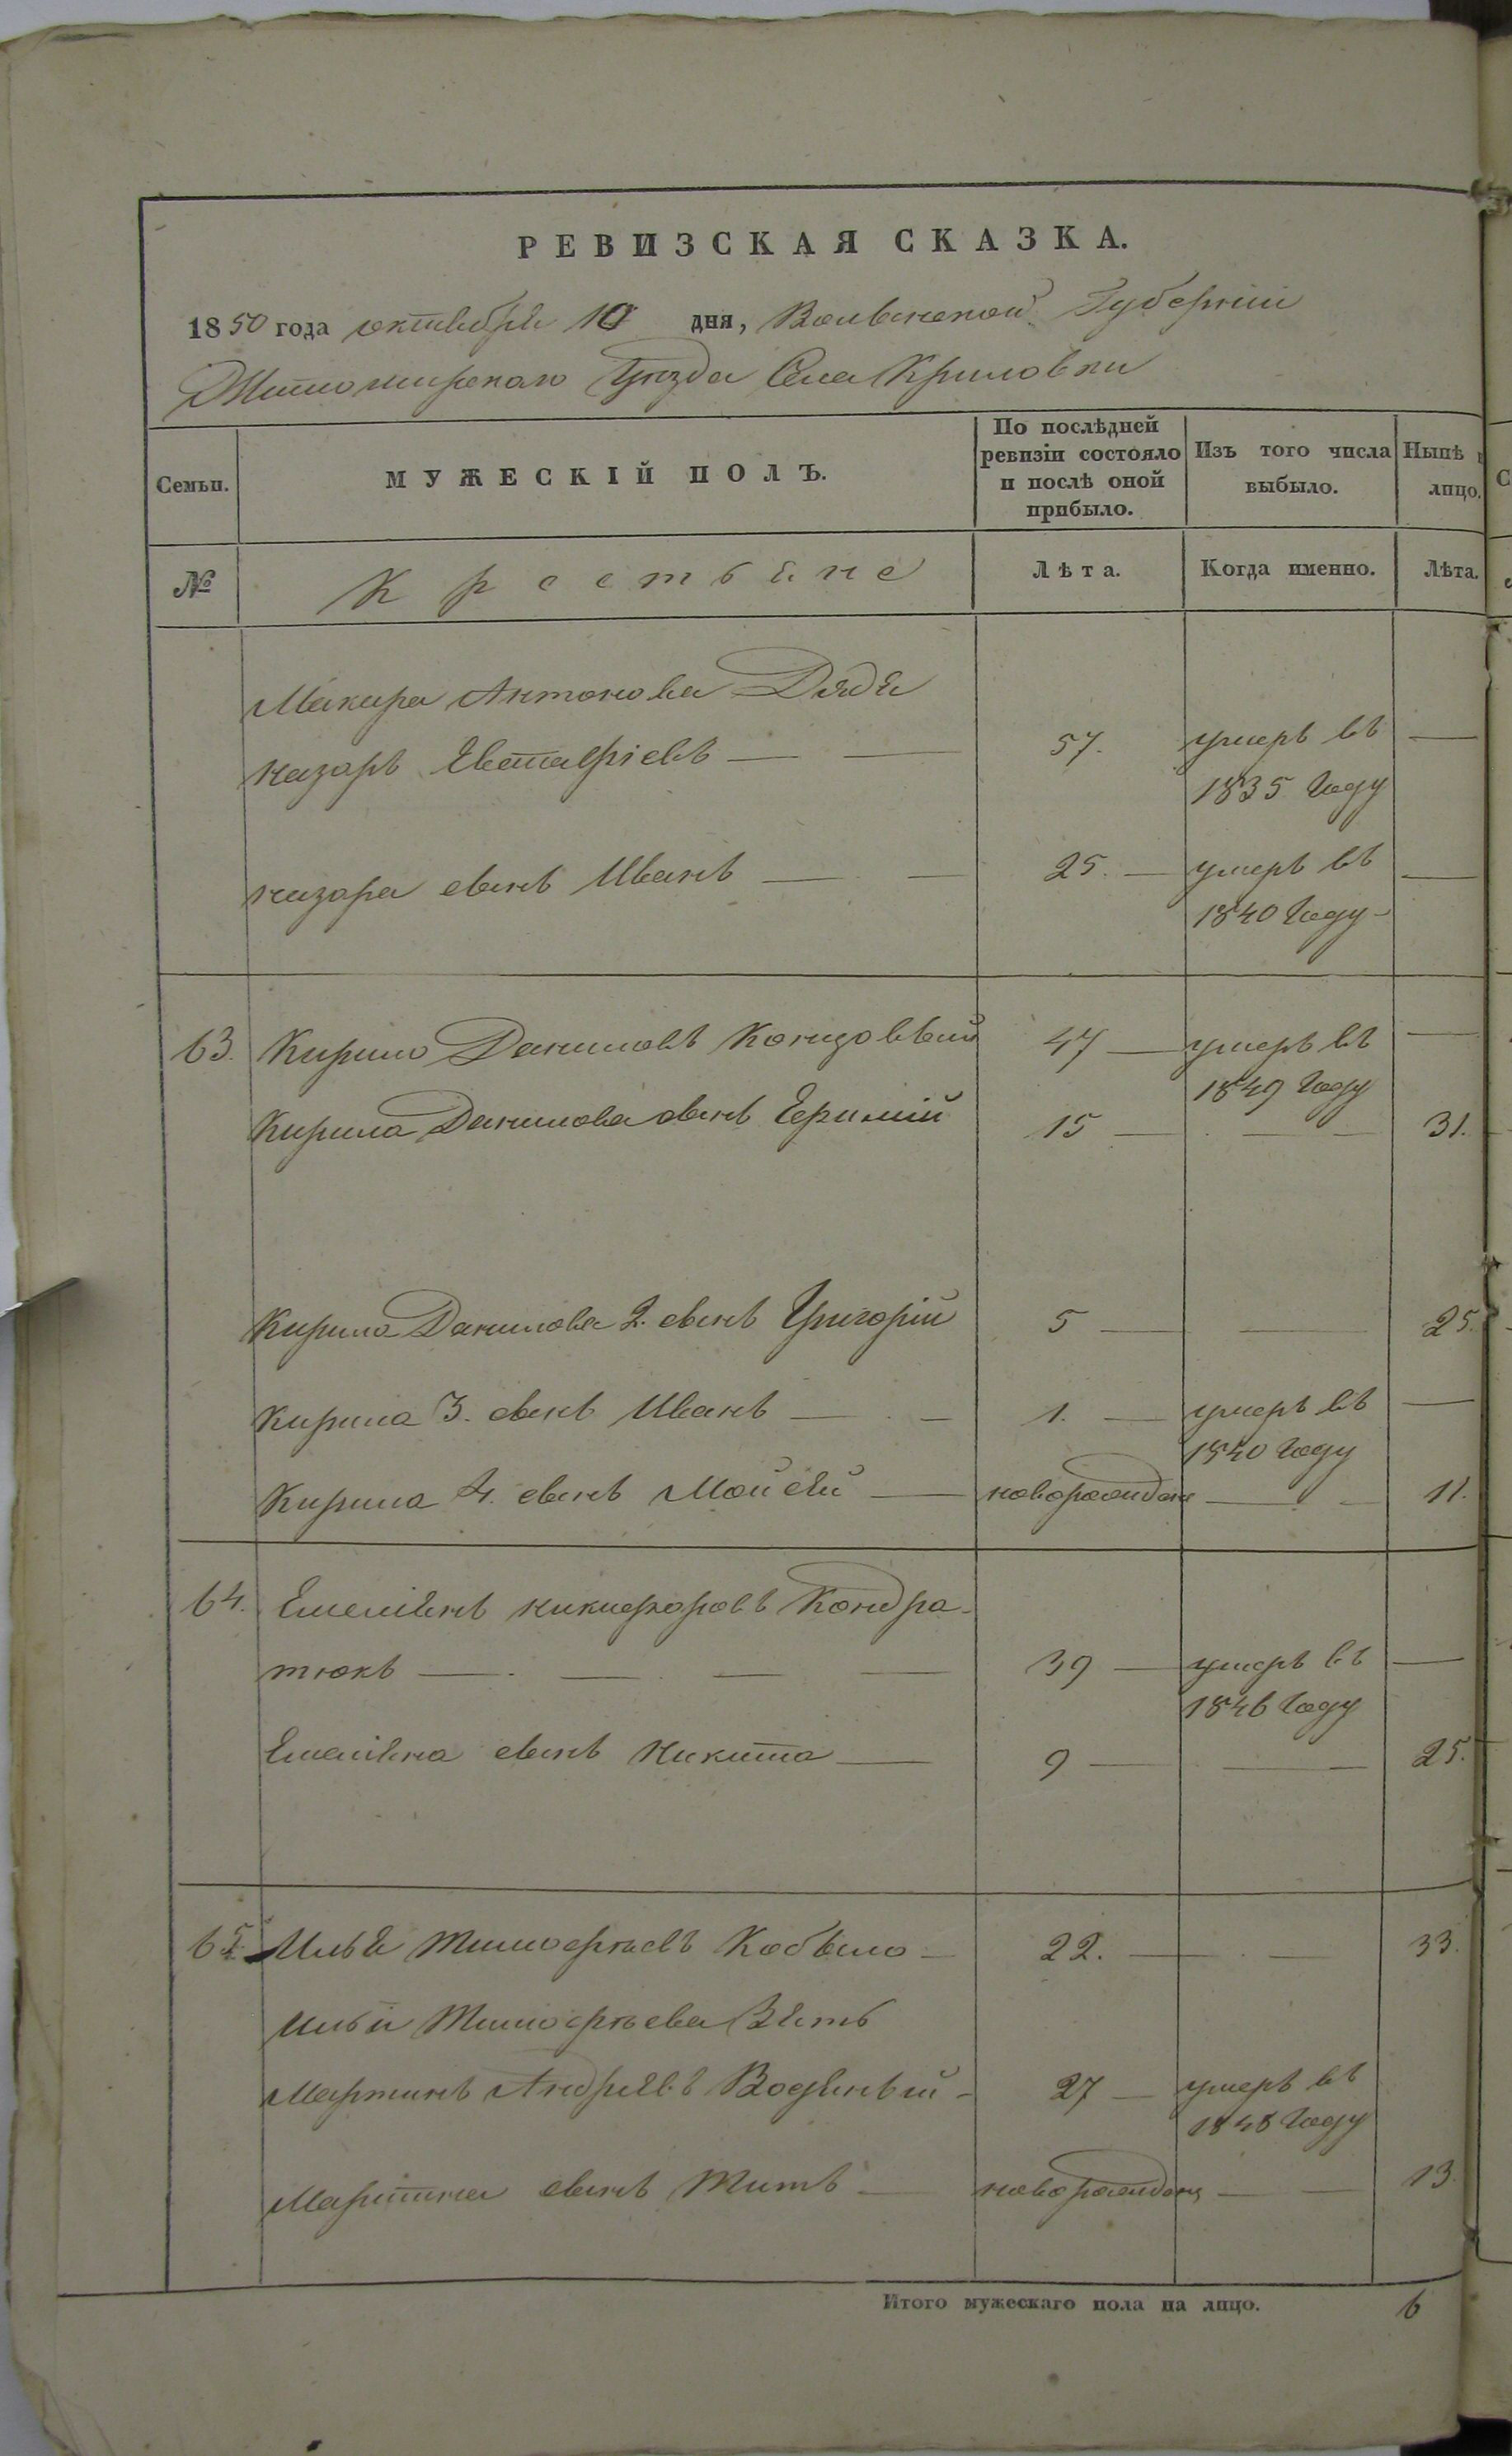 РЕВИЗСКАЯ СКАЗКА.
1850 года октября 10 дня, Волынской Губерніи
Житомирского Уезда Села Криловки
Семьи. МУЖЕСКІЙ ПОЛЪ. По послѣдней ревизіи состояло и послѣ оной прибыло. Изъ того числа выбыло. Нынѣ лицо.
№ Крестьяне Лѣта. Когда именно. Лѣта.
Макара Антонова Дядя
Назаръ Евстафіевъ 57. умеръ въ
1835 Году
Назара сынъ Иванъ 25. умеръ въ
1840 Году
63. Кирило Даниловъ 47 умеръ въ
1849 Году
Кирила Данилова сынъ Еримій 15 31.
Кирила Данилова 2. сынъ Григорій 5 25.
Кирила 3. сынъ Иванъ 1. умеръ въ
1840 Году
Кирила 4. сынъ Мойсей новорожден 11.
64. Емеліянъ Никифоровъ Кондра-
тюкъ 39 умеръ въ
1846 Году
Емеліяна сынъ Никита 9 25.
65 Илья Тимофѣевъ Кобыло 22. 33.
Ильи Тимофѣева Зять
Мартинъ Андреевъ 27 умеръ въ
1848 Году
Мартина сынъ Титъ новорожденъ 13.
Итого мужескаго пола на лицо. 6